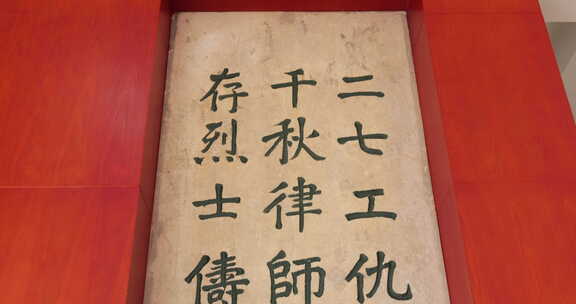 二七工仇
千秋律師
存烈士儔